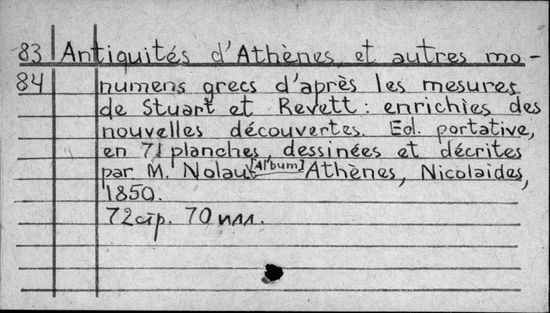 83 Antiquités d'Athènes et autres mo-
84 numens grecs d'après les mesures
de Stuart et Revett: enrichies des
nouvelles découvertes. Ed. portative,
en 71 planches dessinées et décrites
par M. Nolau [Album] Athènes, Nicolaides,
1850.
72 стр. 70 илл.